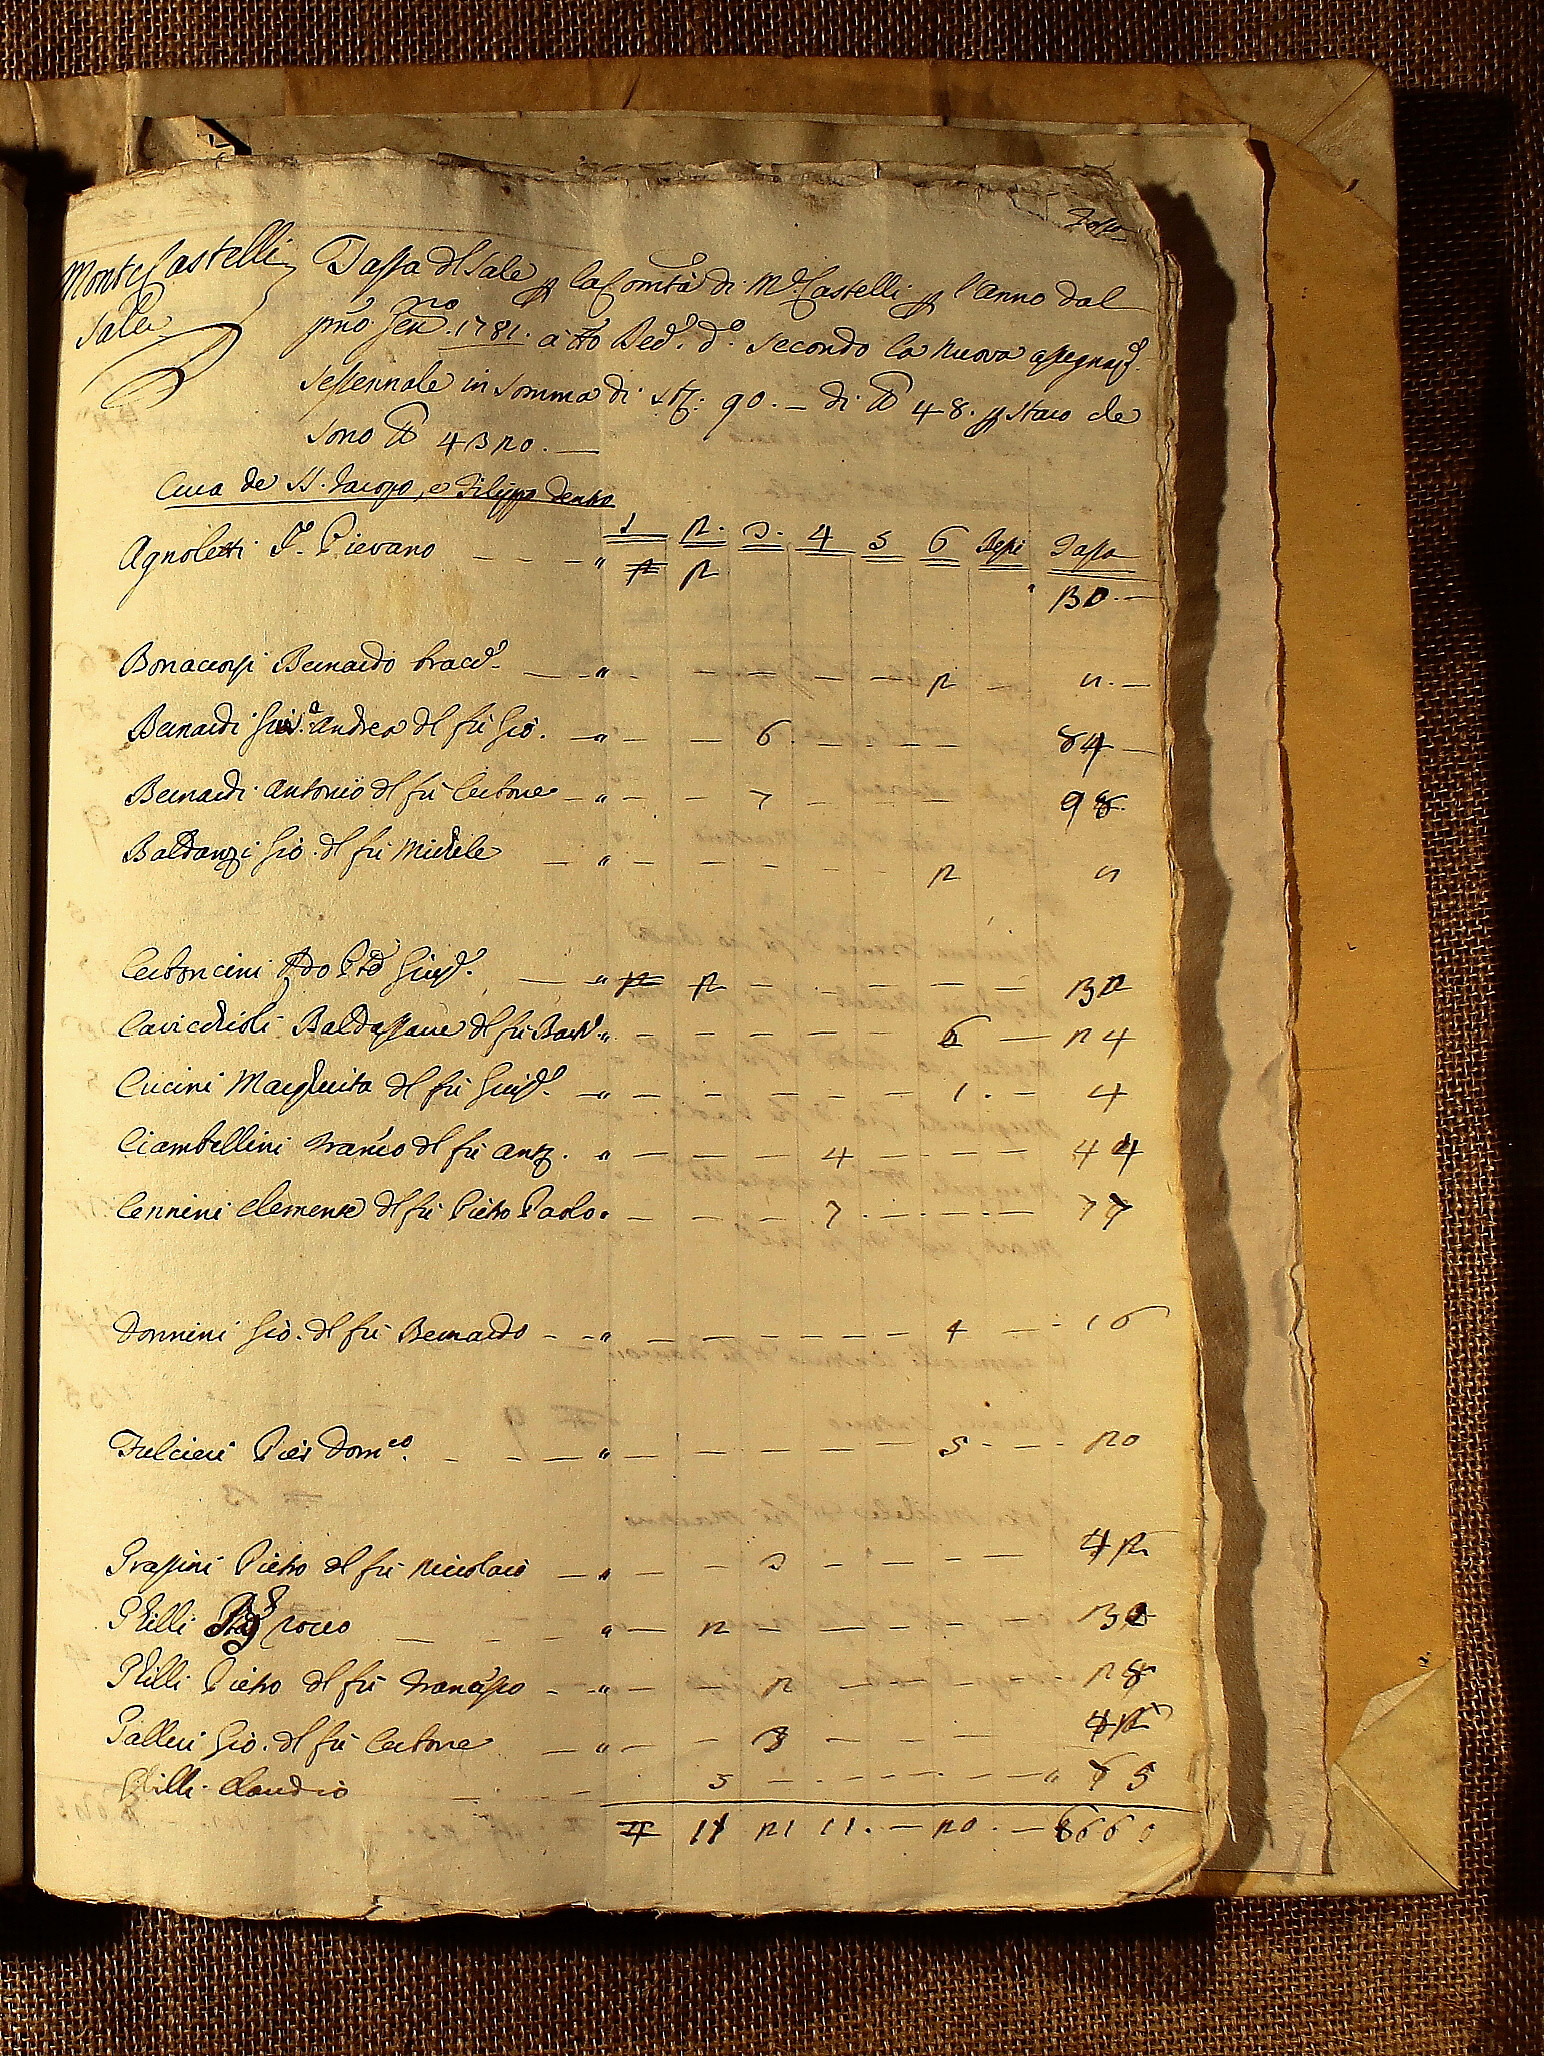 Tassa
Monte Castelli Tassa del Sale p la Com.tà di M.e Castelli p l'anno dal
Sale pmo Genn.o 1781. a tto Dec.e d.o secondo la nuova assegnaz.e
Sessennale in somma di st: 90. — di £ 48. p staio che
sono £ 4320. —
Cura de SS. Jacopo, e Filippo dentro
1 2. 3. 4 5 6 Bessi Tassa
Agnoletti P. Pievano — — — " 2 2 30. —
Bonaccorsi Bernardo bracc.e — " — — — — — 2 — " . —
Bernardi Gius.e Andrea del fù Gio. — " — — 6 — — — 84 —
Bernardi Antonio del fù Cerbone — " — — 7 — — — 98.
Baldanzi Gio. del fù Michele — " — — — — — 2 "
Cerboncini Rdo Pte Gius.e — " 2 2 — — — — — 32
Cavicchioli Baldassarre del fù Bart.o " — — — — — 6 — 24
Cucini Margherita del fù Gius.e — " — — — — — 1 . — 4
Ciambellini Franco del fù Ant.o . " — — — 4 — — — 44
Cennini Clemente del fù Pietro Paolo . — — — 7 . — — — 77
Donnini Gio. del fù Bernardo — — " — — — — — 4 — 16
Fulcieri Pier Dom.co — — — " — — — — — 5 — — 20
Grassini Pietro del fù Niccolaio — " — — 3 — — — — 42
Ghilli Rocco — — — " — 2 — — — — — 3
Ghilli Pietro del fù Francesco — — " — — 2 — — — — 28
Galleri Gio. del fù Cerbone — " — — 3 — — — — 42
Ghilli Claudio 5 — — — — — " 75
4 11 21 11. — 20. — 660